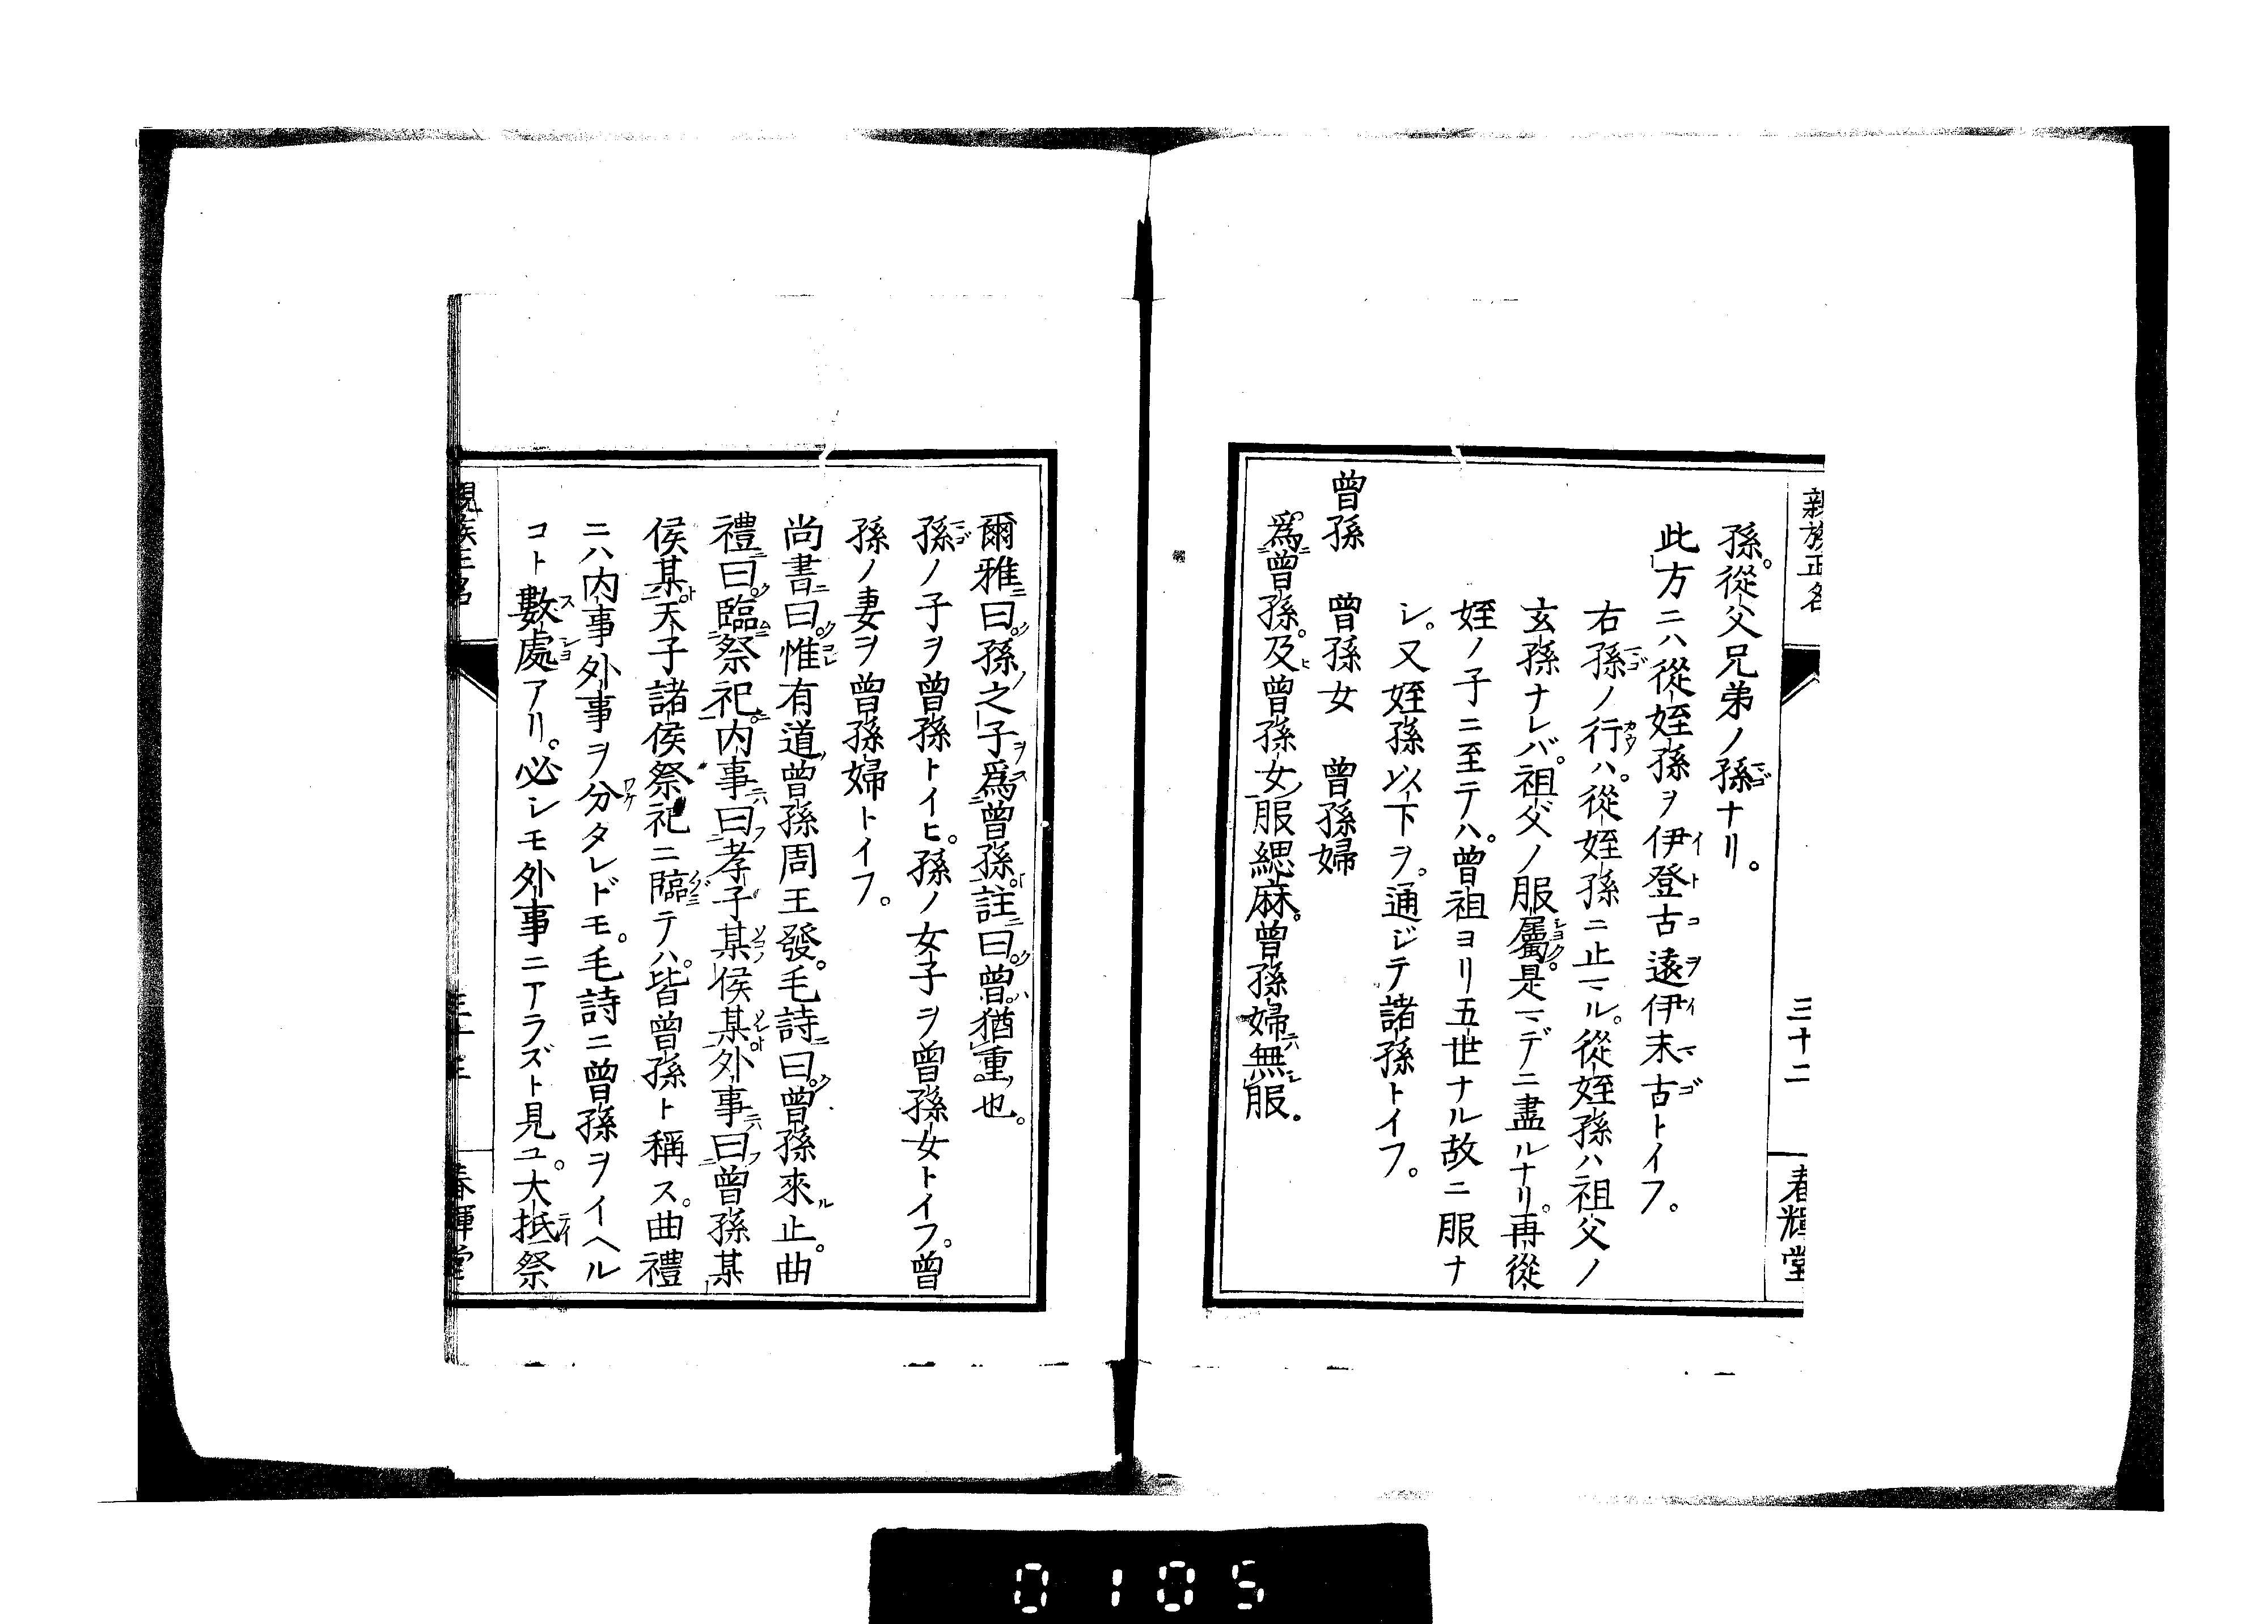 親族正名
三十二
春輝堂
孫。從父兄弟ノ孫ナリ。
此方ニハ從姪孫ヲ伊登古遠伊末古トイフ。
右孫ノ行ハ。從姪孫ニ止マル。從姪孫ハ祖父ノ
玄孫ナレバ。祖父ノ服屬是マデニ盡ルナリ。再從
姪ノ子ニ至テハ。曾祖ヨリ五世ナル故ニ服ナ
シ。又姪孫以下ヲ。通ジテ諸孫トイフ。
曾孫 曾孫女 曾孫婦
爲曾孫。及曾孫女服緦麻。曾孫婦無服。
爾雅曰孫之子爲曾孫。註曰曾。猶重也。
孫ノ子ヲ曾孫トイヒ。孫ノ女子ヲ曾孫女トイフ。曾
孫ノ妻ヲ曾孫婦トイフ。
尚書曰。惟有道曾孫周王發。毛詩曰。曾孫來止。曲
禮曰。臨祭祀。内事曰孝子某侯某。外事曰曾孫某
侯某。天子諸侯祭祀ニ臨テハ。皆曾孫ト稱ス。曲禮
ニハ内事外事ヲ分タレドモ。毛詩ニ曾孫ヲイヘル
コト數處アリ。必シモ外事ニアラズト見ユ。大抵祭
親族正名
春輝堂
0105